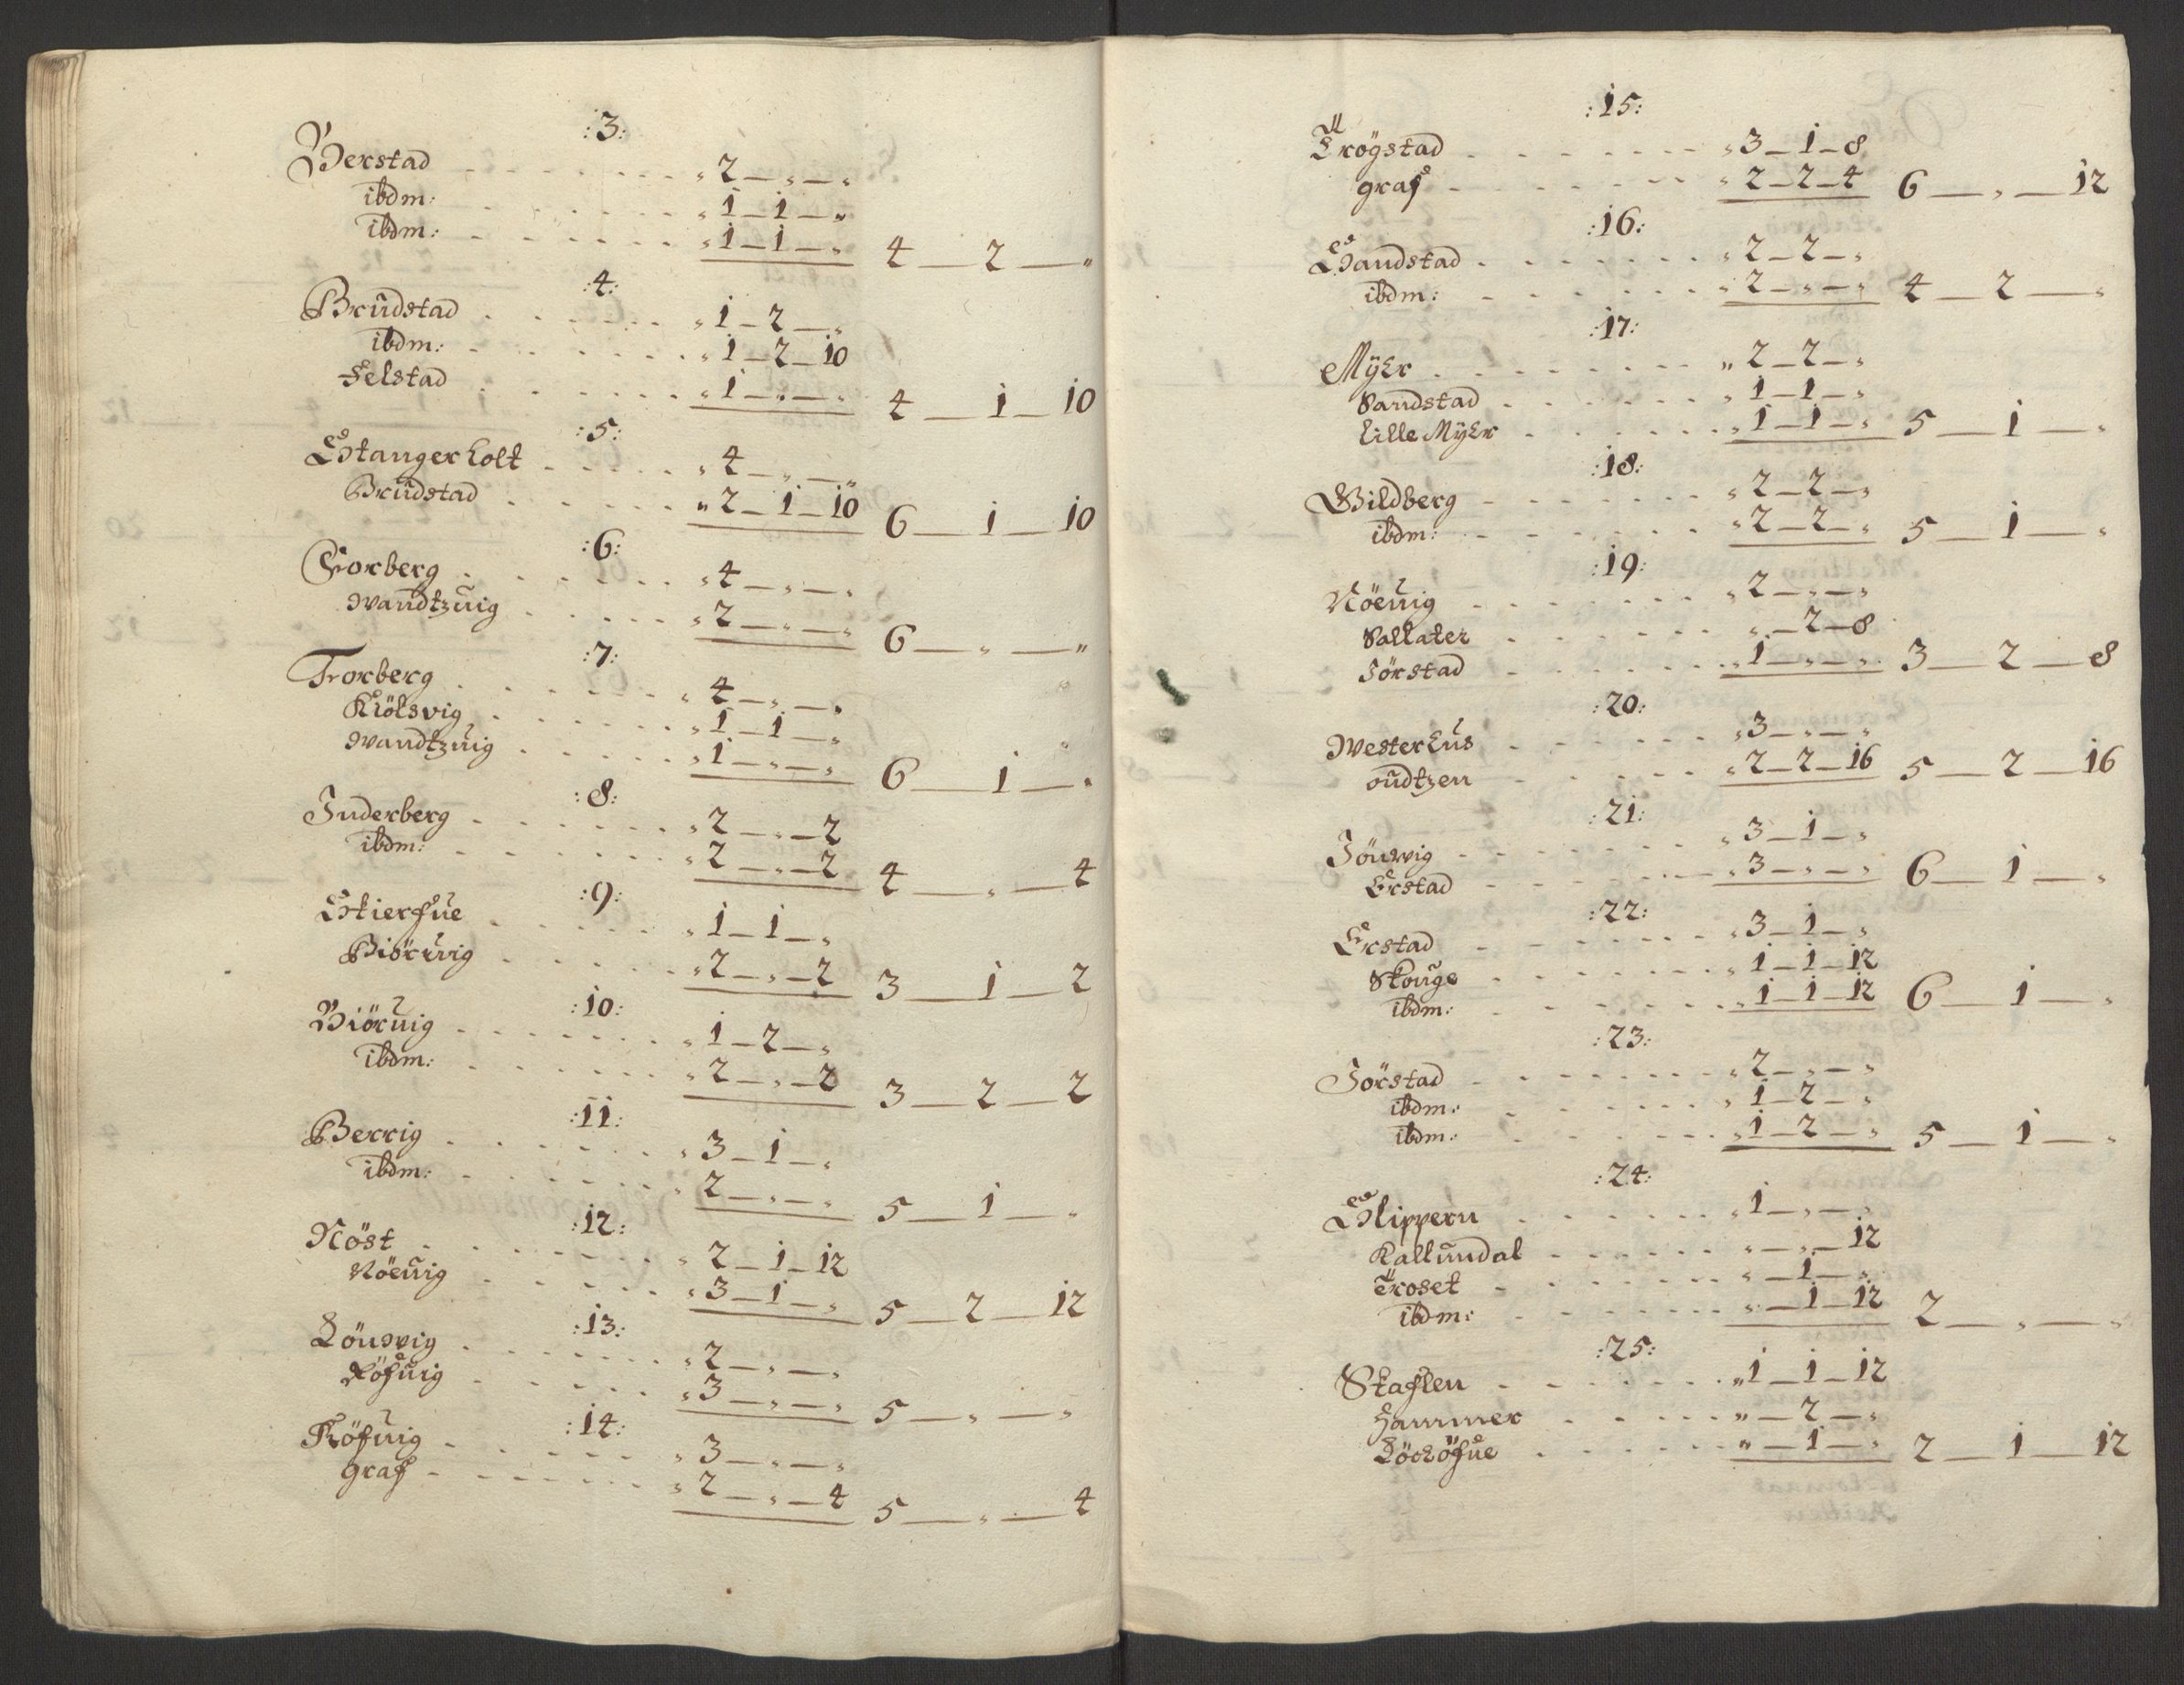 :3:
Berstad . . . . . . . . „ 2 — „ — „
ibdm: . . . . . . . „ 1 — 1 — „
ibdm: . . . . . . . „ 1 — 1 — „ 4 — 2 — „
:4:
Brüdstad . . . . . . „ 1 — 2 — „
ibdm: . . . . . . . „ 1 — 2 — 10
Felstad . . . . . . „ 1 — „ — „ 4 — 1 — 10
:5:
Stangerholt . . . . . „ 4 — „ — „
Brüdstad . . . . . „ 2 — 1 — 10 6 — 1 — 10
:6:
Giorberg . . . . . . „ 4 — „ — „
Wandtzuig . . . . . „ 2 — „ — „ 6 — „ — „
:7:
Torberg . . . . . . „ 4 — „ — „
Kiölsvig . . . . . . „ 1 — 1 — „
Wandtzuig . . . . . „ 1 — „ — „ 6 — 1 — „
:8:
Inderberg . . . . . . „ 2 — „ — 2
ibdm: . . . . . . „ 2 — „ — 2 4 — „ — 4
:9:
Skierfue . . . . . . „ 1 — 1 — „
Biöruvig . . . . . „ 2 — „ — 2 3 — 1 — 2
:10:
Biöruig . . . . . . „ 1 — 2 — „
ibdm: . . . . . . „ 2 — „ — 2 3 — 2 — 2
:11:
Berrig . . . . . . „ 3 — 1 — „
ibdm: . . . . . . „ 2 — „ — „ 5 — 1 — „
:12:
Nöst . . . . . . . „ 2 — 1 — 12
Nöeuig . . . . . „ 3 — 1 — „ 5 — 2 — 12
:13:
Löusvig . . . . . . „ 2 — „ — „
Röfuig . . . . . . „ 3 — „ — „ 5 — „ — „
:14:
Röfuig . . . . . . „ 3 — „ — „
graf . . . . . . . „ 2 — „ — 4 5 — „ — 4
:15:
Trögstad . . . . . . . „ 3 — 1 — 8
graf . . . . . . . „ 2 — 2 — 4 6 — „ — 12
:16:
Sandstad . . . . . . . „ 2 — 2 — „
ibdm: . . . . . . „ 2 — „ — „ 4 — 2 — „
:17:
Myhr . . . . . . . . „ 2 — 2 — „
Sandstad . . . . . . „ 1 — 1 — „
Lille Myhr . . . . . „ 1 — 1 — „ 5 — 1 — „
:18:
Wildberg . . . . . . . „ 2 — 2 — „
ibdm: . . . . . . . „ 2 — 2 — „ 5 — 1 — „
:19:
Nöeuig . . . . . . . „ 2 — „ — „
Sallater . . . . . . „ — 2 — 8
Jörstad . . . . . . „ 1 — „ — „ 3 — 2 — 8
:20:
Westerhus . . . . . . „ 3 — „ — „
oüdtzen . . . . . „ 2 — 2 — 16 5 — 2 — 16
:21:
Jöusvig . . . . . . . „ 3 — 1 — „
Erstad . . . . . . „ 3 — „ — „ 6 — 1 — „
:22:
Erstad . . . . . . . „ 3 — 1 — „
Skouge . . . . . . „ 1 — 1 — 12
ibdm: . . . . . . „ 1 — 1 — 12 6 — 1 — „
:23:
Jörstad . . . . . . . „ 2 — „ — „
ibdm: . . . . . . „ 1 — 2 — „
ibdm: . . . . . . „ 1 — 2 — „ 5 — 1 — „
:24:
Klippern . . . . . . „ 1 — „ — „
Kallundal . . . . . „ — „ — 12
Troset . . . . . . . „ — 1 — „
ibdm: . . . . . . . „ — 1 — 12 2 — „ — „
:25:
Staflen . . . . . . „ 1 — 1 — 12
Hammer . . . . „ — 2 — „
. . . . . „ — 1 — „ 2 — 1 — 12